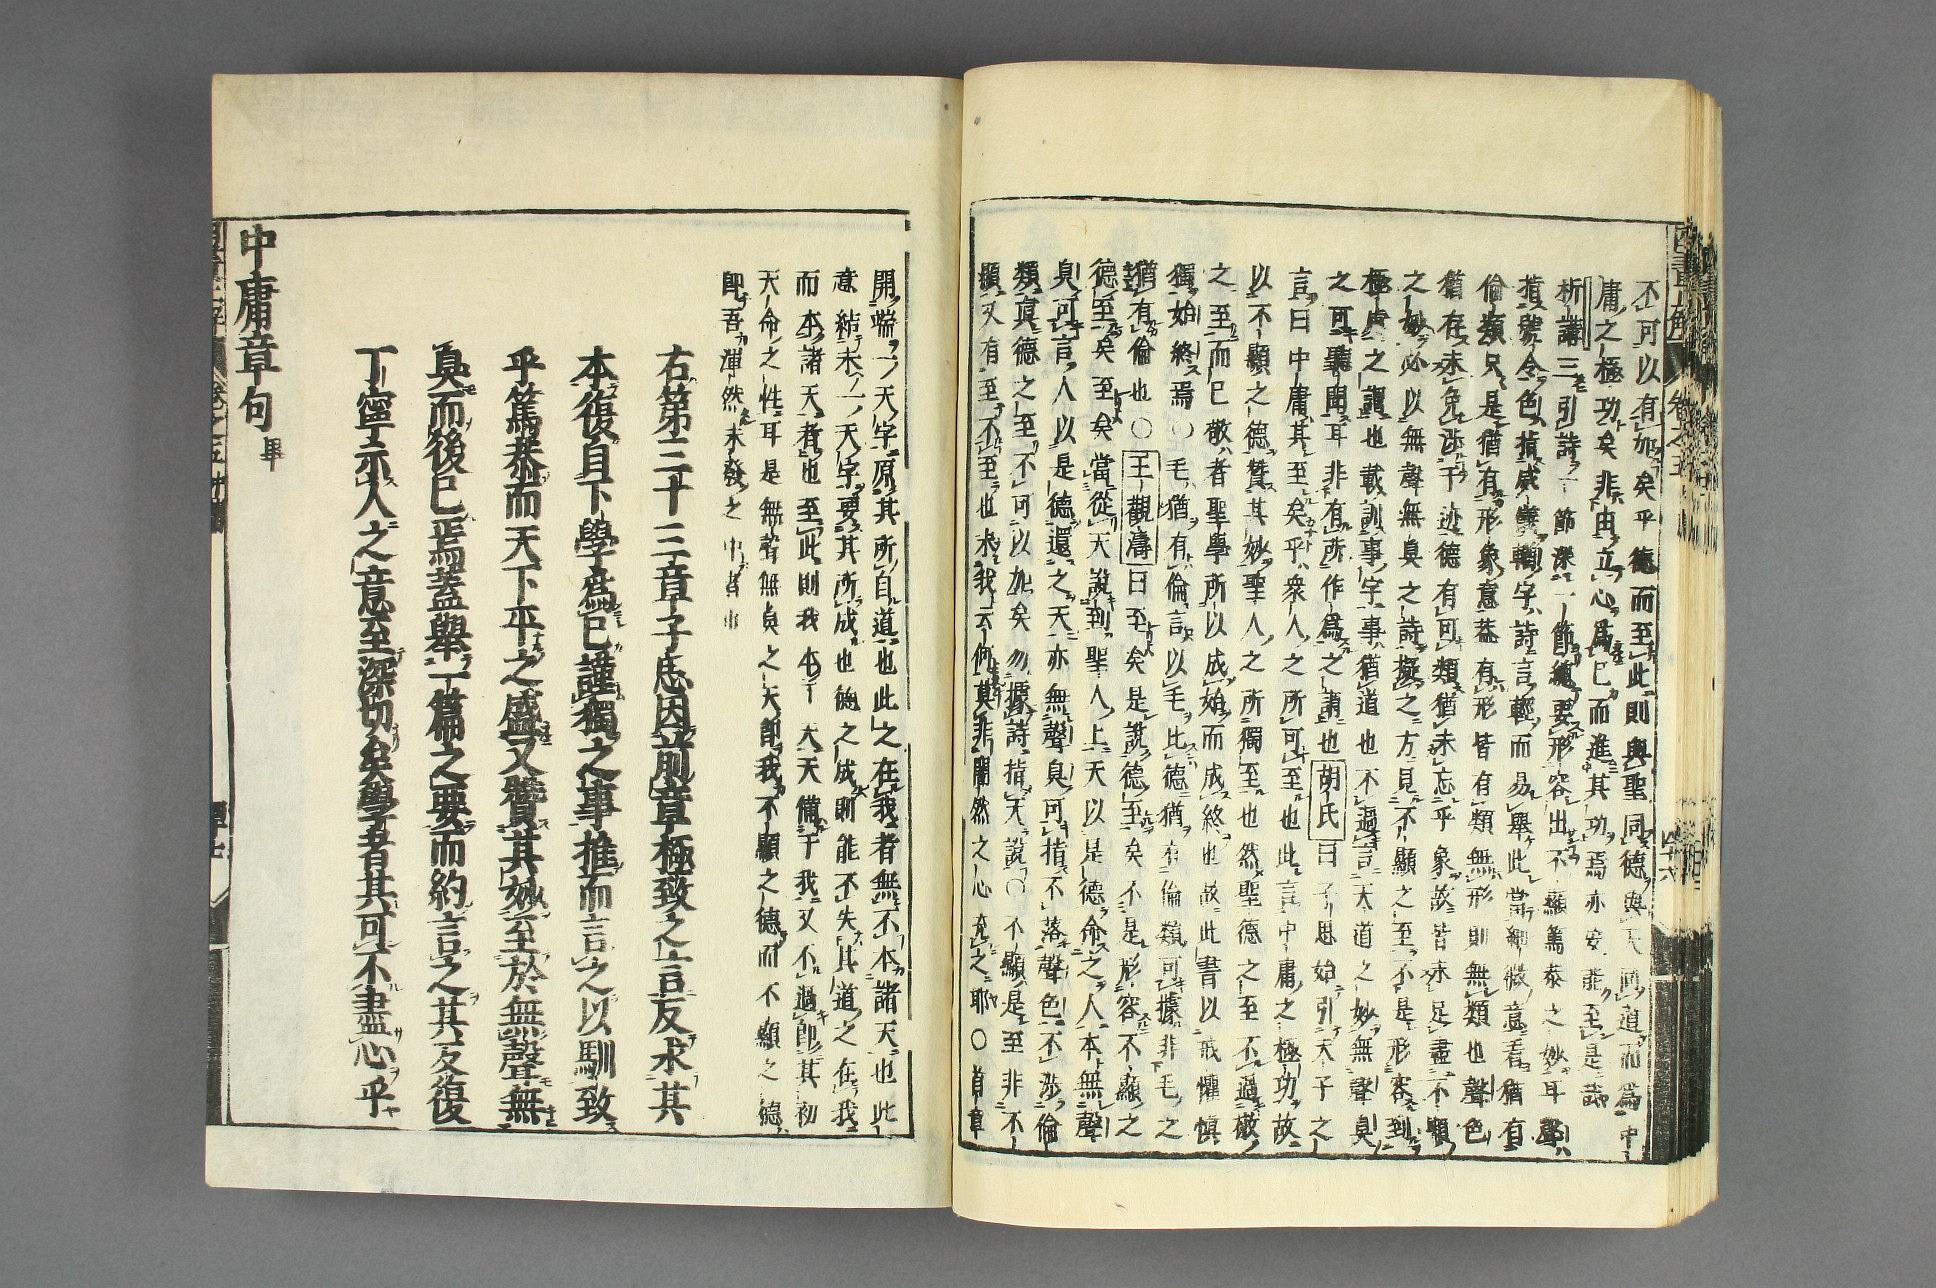 不可以有加矣乎德而至此則與聖同德與天同道而爲中
庸之極功矣非由立心爲己而進其功焉亦安能至是哉
析講三引詩一節深一節總要形容出不顯篤恭之妙耳聲
倫類只是猶有形象意蓋有形皆有類無形則無類也聲色
猶在未免涉于迹德有可類猶未忘乎象故皆未足盡不顯
之妙必以無聲無臭之詩擬之方見不顯之至不是形容到
極處之謂也載訓事字事猶道也不過言天道之妙無聲臭
之可聽聞耳非有所作爲之謂也胡氏曰子思始引天子之
言曰中庸其至矣乎衆人之所可至也此言中庸之極功故
以不顯之德贊其妙聖人之所獨至也然聖德之至不過敬
之至而已敬者聖學所以成始而成終也故此書以戒懼慎
獨始終焉○毛猶有倫言以毛比德猶有倫類可據非毛之
猶有倫也○王觀濤曰至矣是說德至矣不是形容不顯之
德至矣至矣當從天說到聖人上天以是德命之人本無聲
臭可言人以是德還之天亦無聲臭可指不落聲色不涉倫
類眞德之至不可以加矣勿據詩指天說○不顯是至非不
顯又有至不至也未我云何莫非闇然之心充之耶○首章
開端一天字原其所自道也此之在我者無不本諸天也此
意結末一天字要其所成也德之成則能不失其道之在我
而本諸天者也至此則我本于天天備于我又不過卽其初
天命之性耳是無聲無臭之天卽我不顯之德而不顯之德
卽吾渾然未發之中者也
右第三十三章子思因前章極致之言反求其
本復自下學爲己謹獨之事推而言之以馴致
乎篤恭而天下平之盛又贊其妙至於無聲無
臭而後已焉蓋舉一篇之要而約言之其反復
丁寧示人之意至深切矣學者其可不盡心乎
中庸章句畢